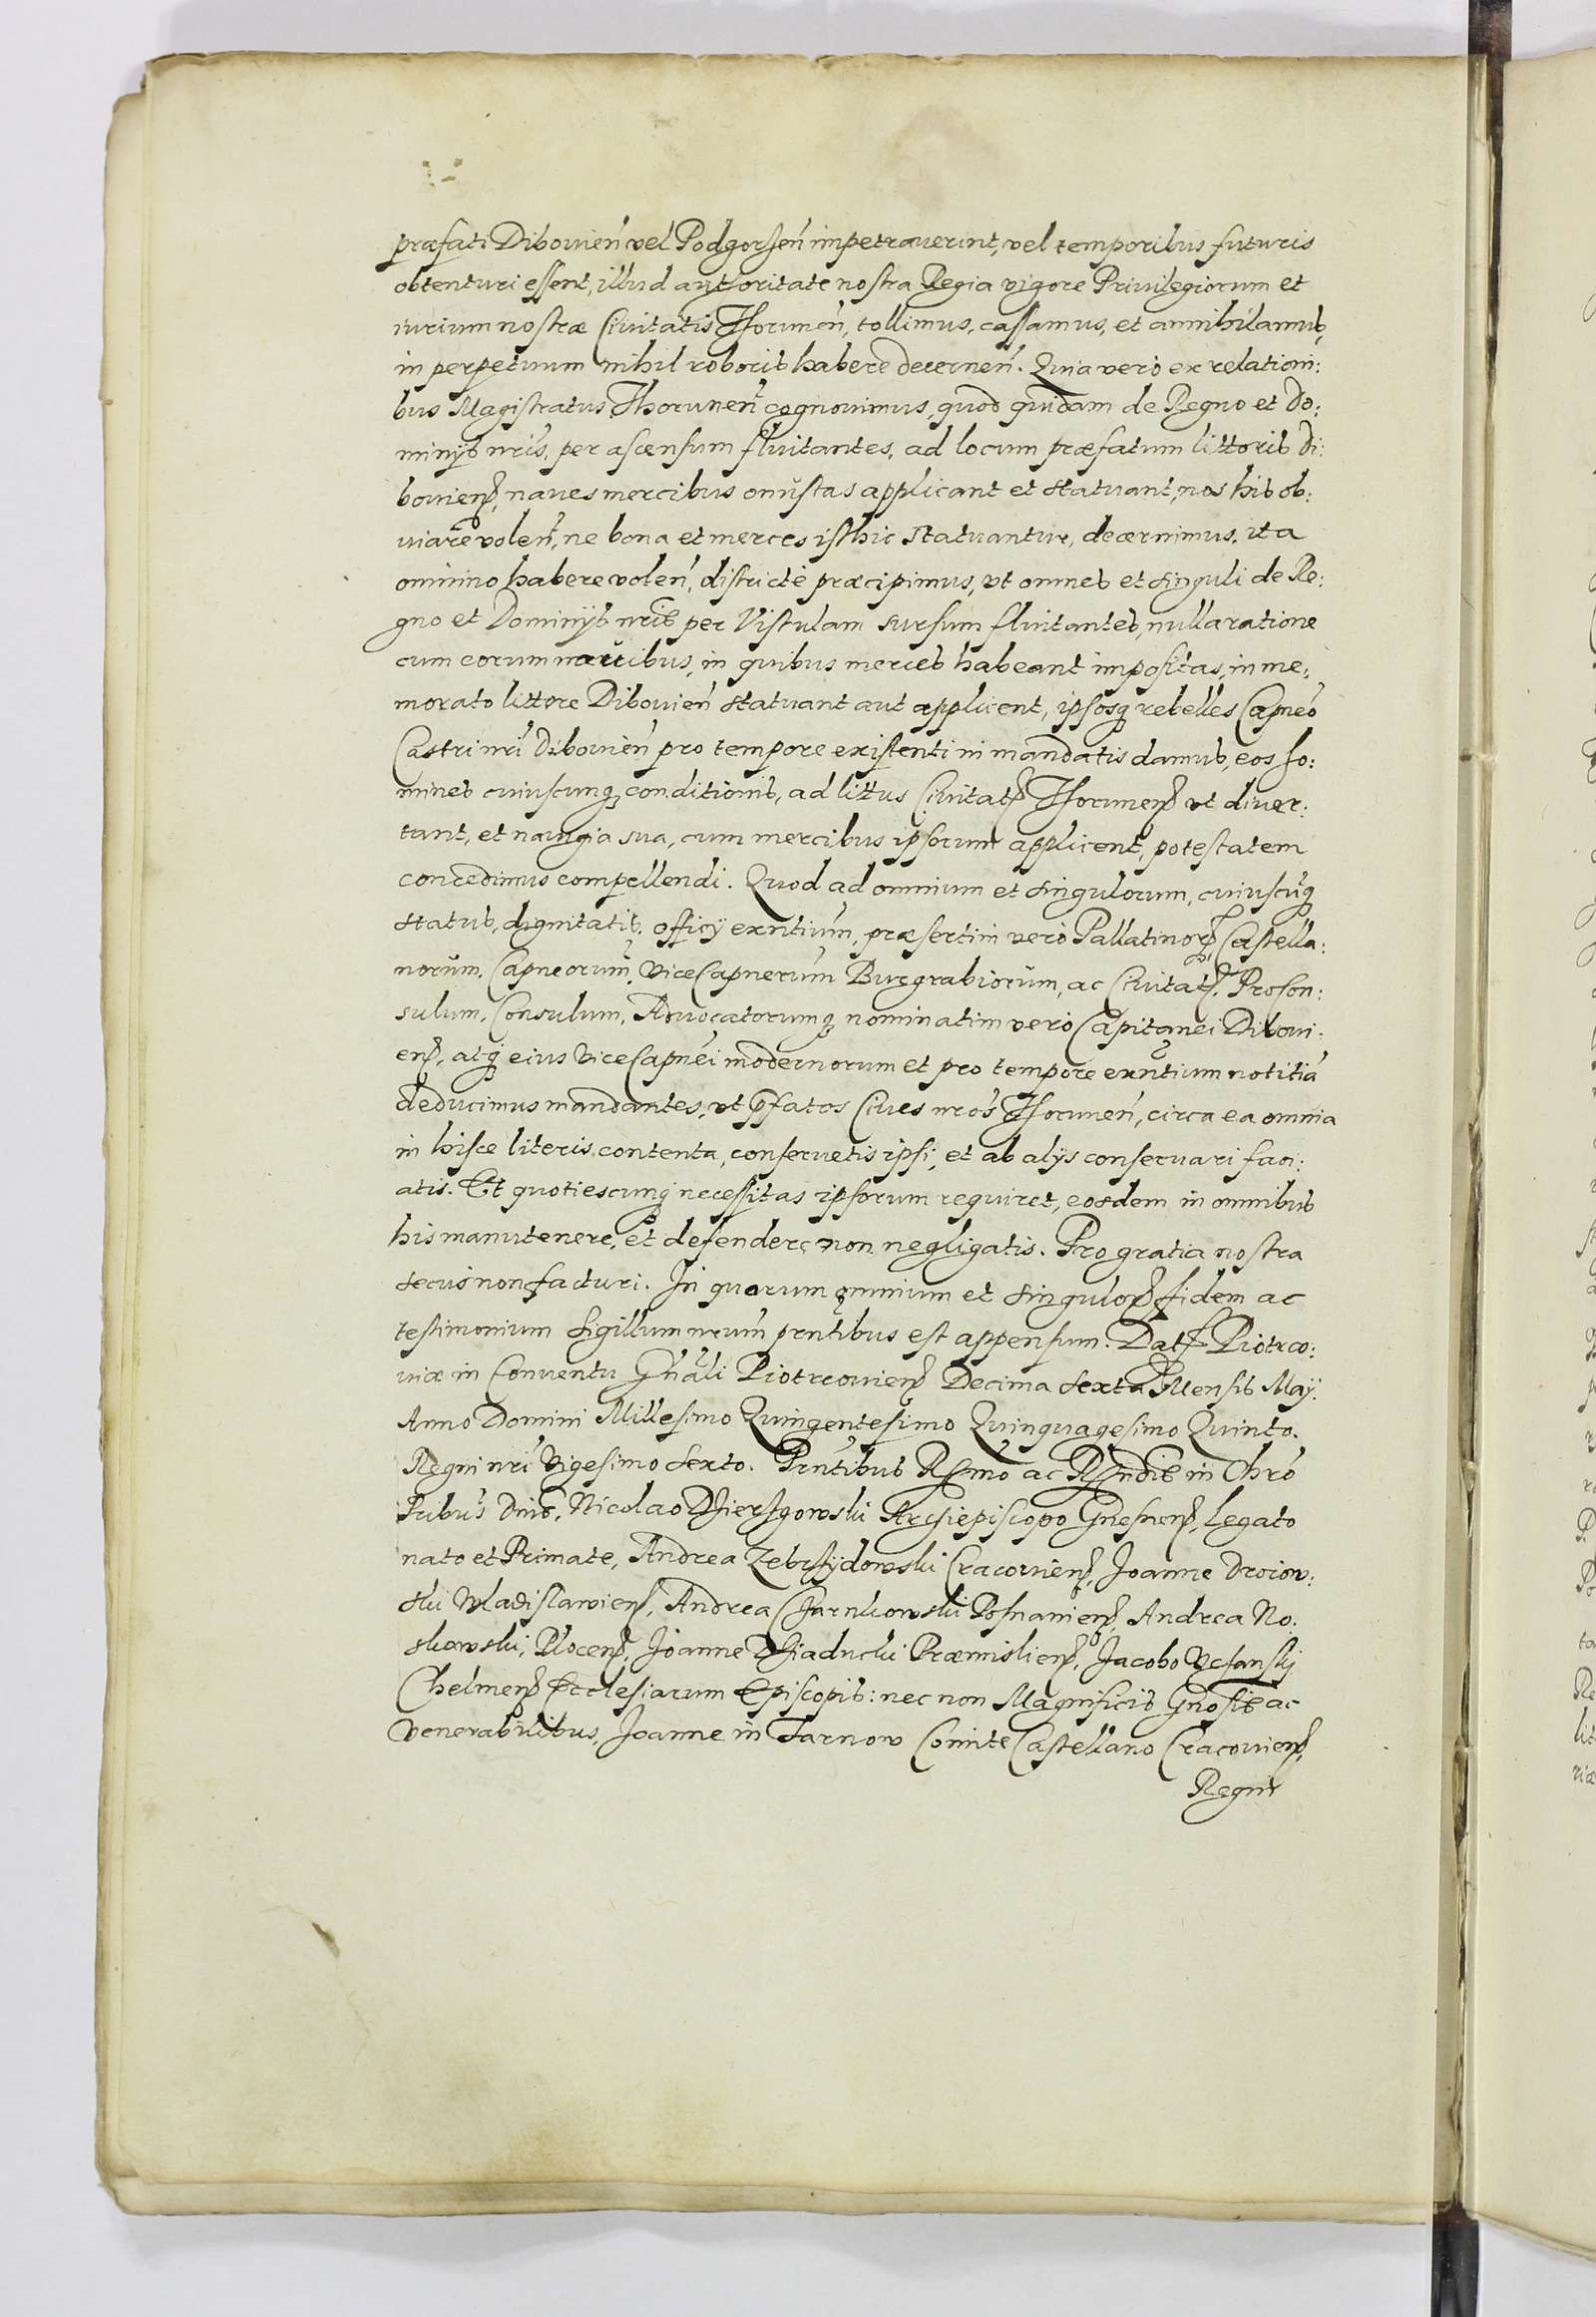 præfati Dibouień vel Podgorzeń impetrauerint, vel temporibus futuris
obtenturi essent, illud authoritate nostra Regia vigore Priuilegiorum et
iurium nostræ Ciuitatis Thoruneń, tollimus, cassamus, et annihilamus,
in perpetuum nihil roboris habere decerneń. Quia verò ex relationi:
bus Magistratus Thoruneń cognouimus, quod quidam de Regno et Do:
minijs nris, per ascensum fluitantes, ad locum præfatum littoris Di:
bouien, naues mercibus onustas applicant et statuant, nos his ob:
uiare voleń, ne bona et merces isthic statuantur, decernimus, ita
omnino habere voleń, districtè præcipimus, vt omnes et singuli de Re:
gno et Dominijs nris per Vistulam sursum fluitantes, nulla ratione
cum eorum nauibus, in quibus merces habeant impositas, in me:
morato littore Dibouień statuant aut applicent, ipsosq rebelles Capneo
Castri nri Dibouień pro tempore existenti in mandatis damus, eos ho:
mines cuiuscunq conditionis, ad littus Ciuitat Thorunen vt diuer:
tant, et nauigia sua, cum mercibus ipsorum applicent, potestatem
concedimus compellendi. Quod ad omnium et singulorum, cuiuscuq
status, dignitatis, officij exntium, præsertim verò Pallatinor, Castella:
norum, Capneorum, ViceCapnerum Burgrabiorum, ac Ciuitat, ProCon:
sulum, Consulum, Aduocatorumq nominatim verò Capitanei Diboui:
en, atq eius ViceCapnei modernorum et pro tempore exntium notitiã
deducimus mandantes, vt pfatos Ciues nros Thoruneń, circa ea omnia
in hisce literis contenta, conseruetis ipsi, et ab alijs conseruari faci:
atis. Et quotiescunq necessitas ipsorum requiret, eosdem in omnibus
his manutenere, et defendere non negligatis. Pro gratia nostra
secus non facturi. In quorum omnium et singulor fidem ac
testimonium Sigillum nrum prntibus est appensum. Dat Piotrco:
uiæ in Conuentu Gnali Piotrcouien Decima Sexta Mensis Maij.
Anno Domini Millesimo Quingentesimo Quinquagesimo Quinto.
Regni nri Vigesimo Sexto. Prntibus Rssmo ac Rssndis in Chro
Pribus Dnis, Nicolao Dzierzgowski Archiepiscopo Gnesnen, Legato
nato et Primate, Andrea Zebrzydowski Cracouien, Joanne Droiow:
ski Wladislawien, Andrea Czarnkowski Posnanien, Andrea No:
skowski, Plocen, Joanne Dziaduski Præmislien, Jacobo Vchansky
Chelmen Ecclesiarum Episcopis: nec non Magnificis Gnosis ac
venerabilibus, Joanne in Tarnow Comite Castellano Cracouien,
Regni